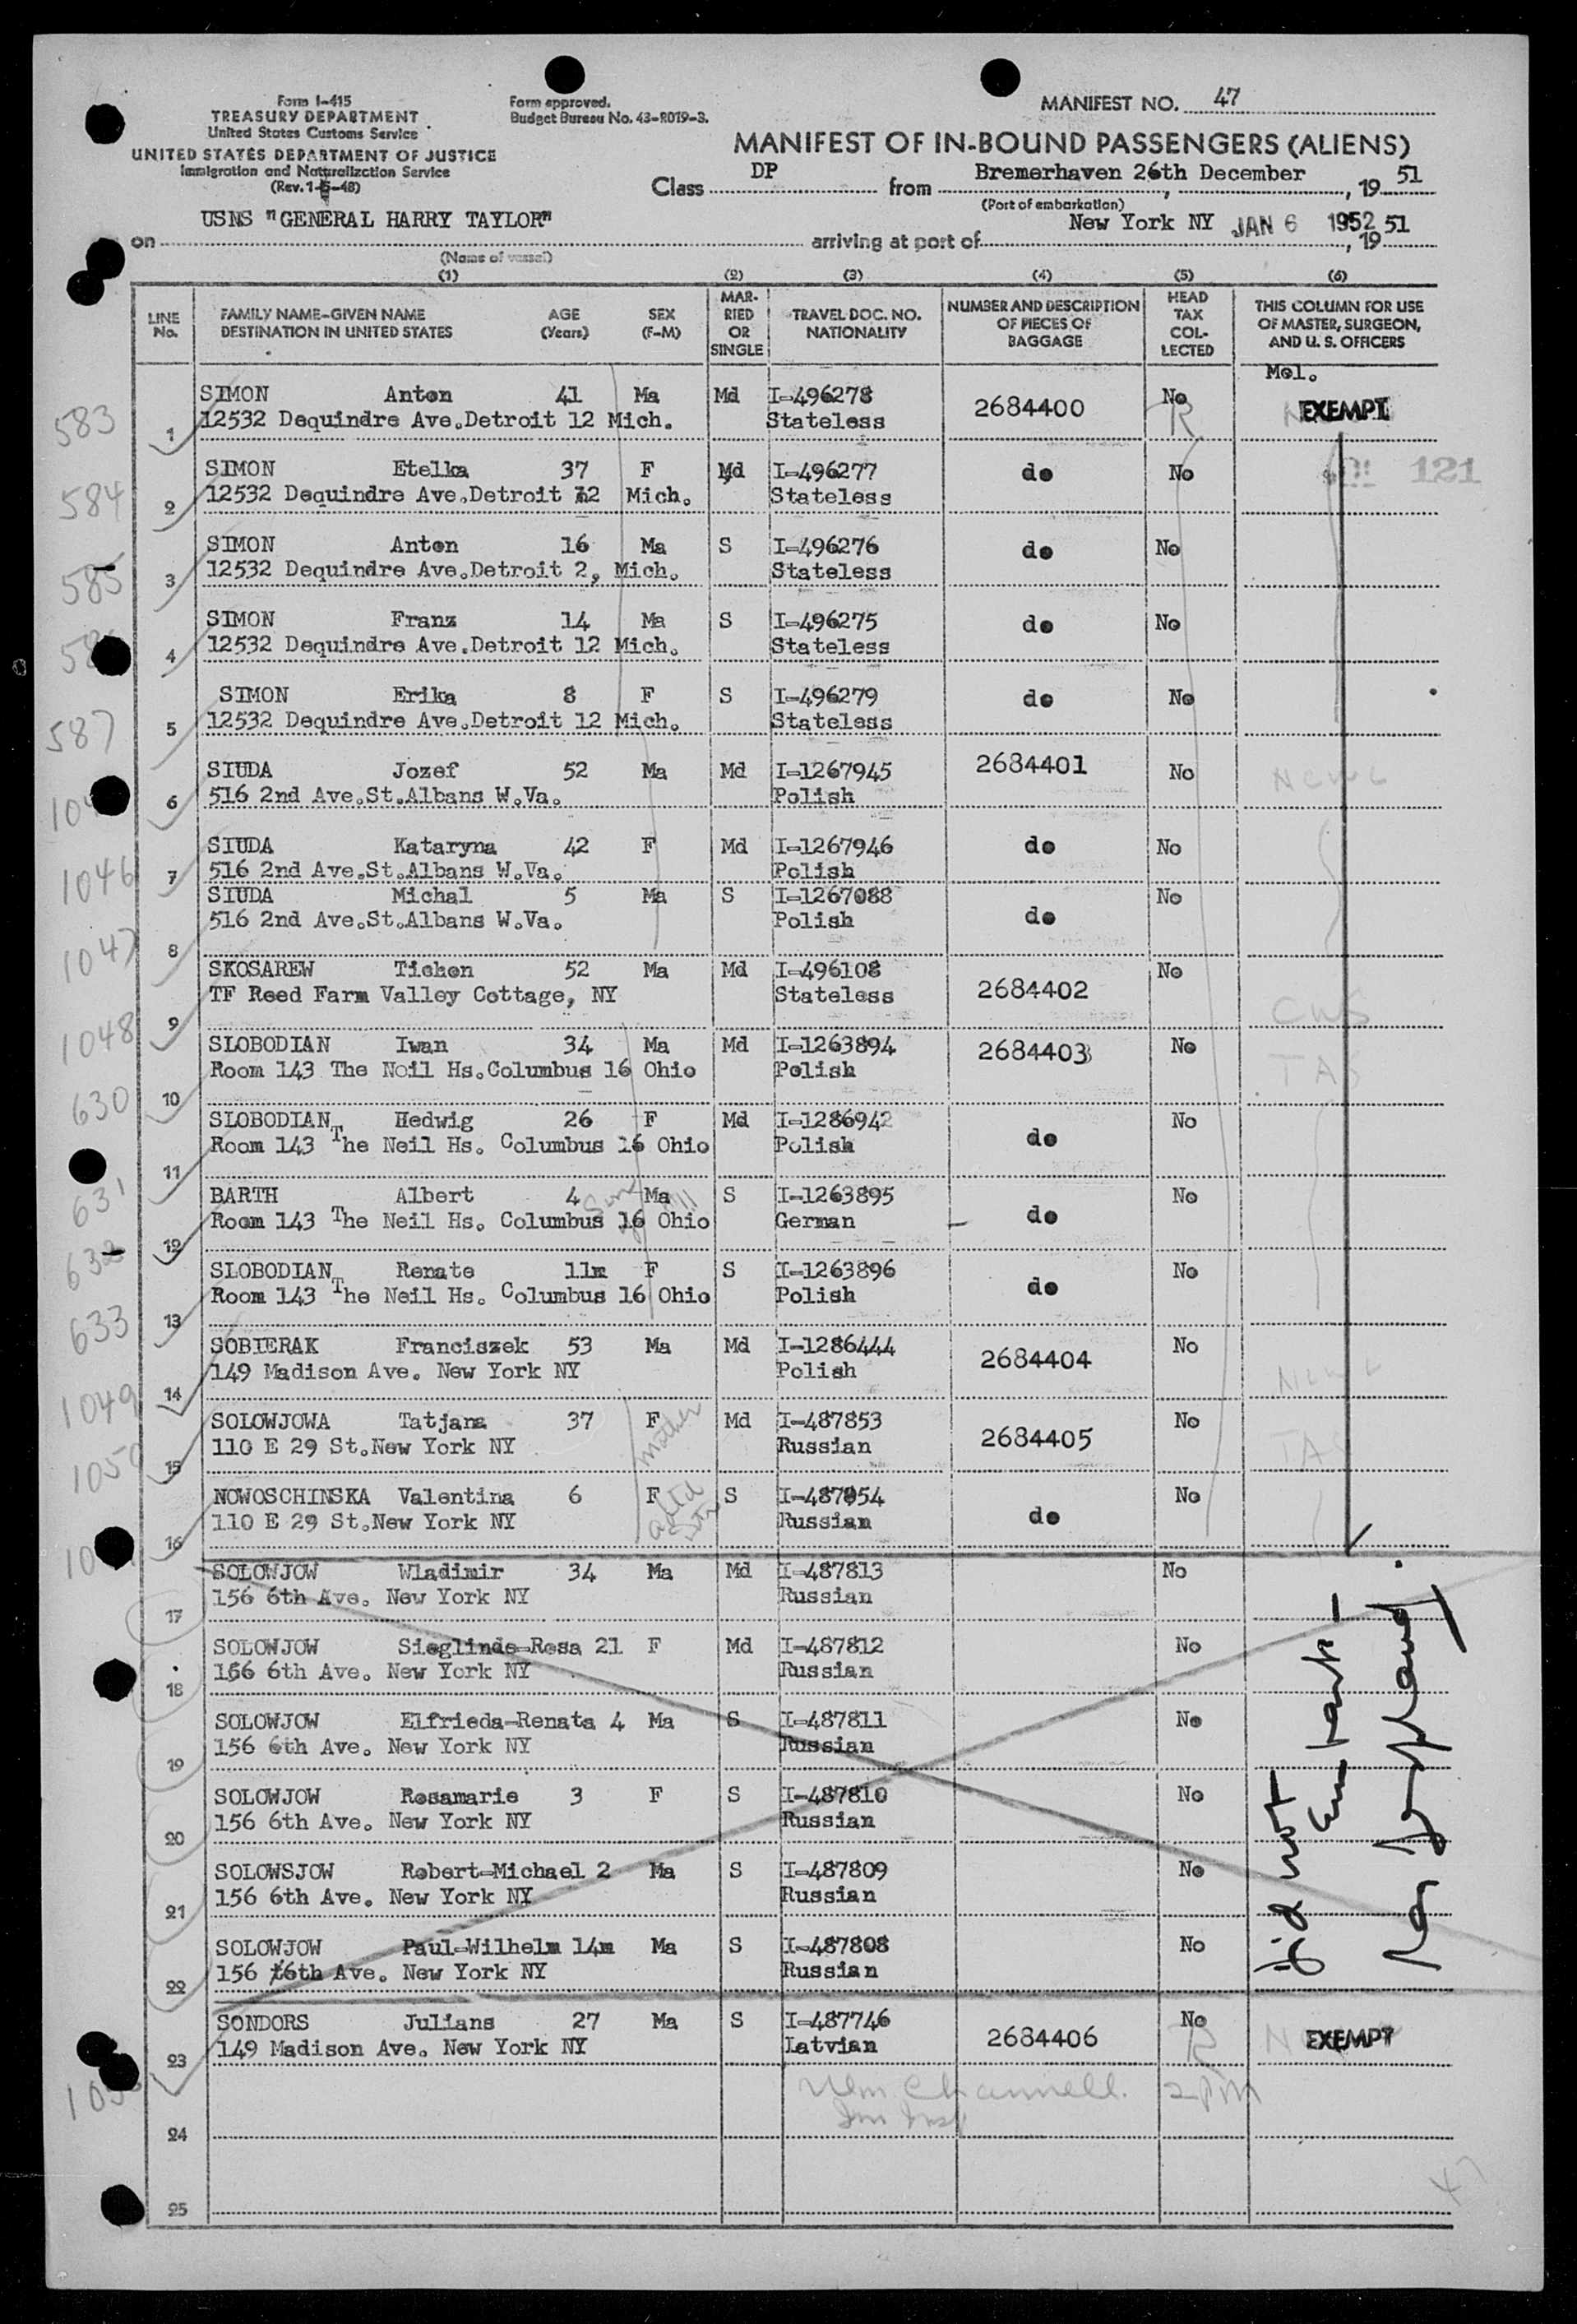 Form I-415
TREASURY DEPARTMENT
United States Customs Service
UNITED STATES DEPARTMENT OF JUSTICE
Immigration and Naturalization Service
(Rev. 1-5-48)
Form approved.
Budget Bureau No. 43-R019-3.
MANIFEST NO. 47
MANIFEST OF IN-BOUND PASSENGERS (ALIENS)
Class DP from Bremerhaven 26th December, 19 51
(Port of embarkation)
on USNS "GENERAL HARRY TAYLOR" arriving at port of New York NY JAN 6 1952, 19 51
(Name of vessel)
(1) (2) (3) (4) (5) (6)
LINE No. FAMILY NAME-GIVEN NAME DESTINATION IN UNITED STATES AGE (Years) SEX (F-M) MARRIED OR SINGLE TRAVEL DOC. NO. NATIONALITY NUMBER AND DESCRIPTION OF PIECES OF BAGGAGE HEAD TAX COLLECTED THIS COLUMN FOR USE OF MASTER, SURGEON, AND U. S. OFFICERS
Mel.
583 1 SIMON Anton 41 Ma Md I-496278 2684400 No R EXEMPT
12532 Dequindre Ave.Detroit 12 Mich. Stateless
584 2 SIMON Etelka 37 F Md I-496277 do No 121
12532 Dequindre Ave.Detroit 12 Mich. Stateless
585 3 SIMON Anton 16 Ma S I-496276 do No
12532 Dequindre Ave.Detroit 2, Mich. Stateless
4 SIMON Franz 14 Ma S I-496275 do No
12532 Dequindre Ave.Detroit 12 Mich. Stateless
587 5 SIMON Erika 8 F S I-496279 do No
12532 Dequindre Ave.Detroit 12 Mich. Stateless
6 SIUDA Jozef 52 Ma Md I-1267945 2684401 No NCWC
516 2nd Ave.St.Albans W.Va. Polish
1046 7 SIUDA Kataryna 42 F Md I-1267946 do No
516 2nd Ave.St.Albans W.Va. Polish
1047 8 SIUDA Michal 5 Ma S I-1267088 do No
516 2nd Ave.St.Albans W.Va. Polish
1048 9 SKOSAREW Tichon 52 Ma Md I-496108 2684402 No CWS
TF Reed Farm Valley Cottage, NY Stateless
630 10 SLOBODIAN Iwan 34 Ma Md I-1263894 2684403 No TAS
Room 143 The Noil Hs.Columbus 16 Ohio Polish
11 SLOBODIAN Hedwig 26 F Md I-1286942 do No
Room 143 The Neil Hs. Columbus 16 Ohio Polish
631
632 12 BARTH Albert 4 Ma S I-1263895 do No
Room 143 The Neil Hs. Columbus 16 Ohio German
633 13 SLOBODIAN Renate 11m F S I-1263896 do No
Room 143 The Neil Hs. Columbus 16 Ohio Polish
1049 14 SOBIERAK Franciszek 53 Ma Md I-1286444 2684404 No NCWC
149 Madison Ave. New York NY Polish
1050 15 SOLOWJOWA Tatjana 37 F mother Md I-487853 2684405 No
110 E 29 St.New York NY Russian
16 NOWOSCHINSKA Valentina 6 F S I-487854 do No
110 E 29 St.New York NY Russian
17 SOLOWJOW Wladimir 34 Ma Md I-487813 No
156 6th Ave. New York NY Russian
18 SOLOWJOW Sieglinde-Rosa 21 F Md I-487812 No
156 6th Ave. New York NY Russian
19 SOLOWJOW Elfrieda-Renata 4 Ma S I-487811 No
156 6th Ave. New York NY Russian
20 SOLOWJOW Rosamarie 3 F S I-487810 No
156 6th Ave. New York NY Russian
21 SOLOWSJOW Robert-Michael 2 Ma S I-487809 No
156 6th Ave. New York NY Russian
22 SOLOWJOW Paul-Wilhelm 14m Ma S I-487808 No
156 6th Ave. New York NY Russian
did not Embark
23 SONDORS Julians 27 Ma S I-487746 2684406 No R EXEMPT
149 Madison Ave. New York NY Latvian
Wm Channell. 2 PM
Im Insp
24
25
47